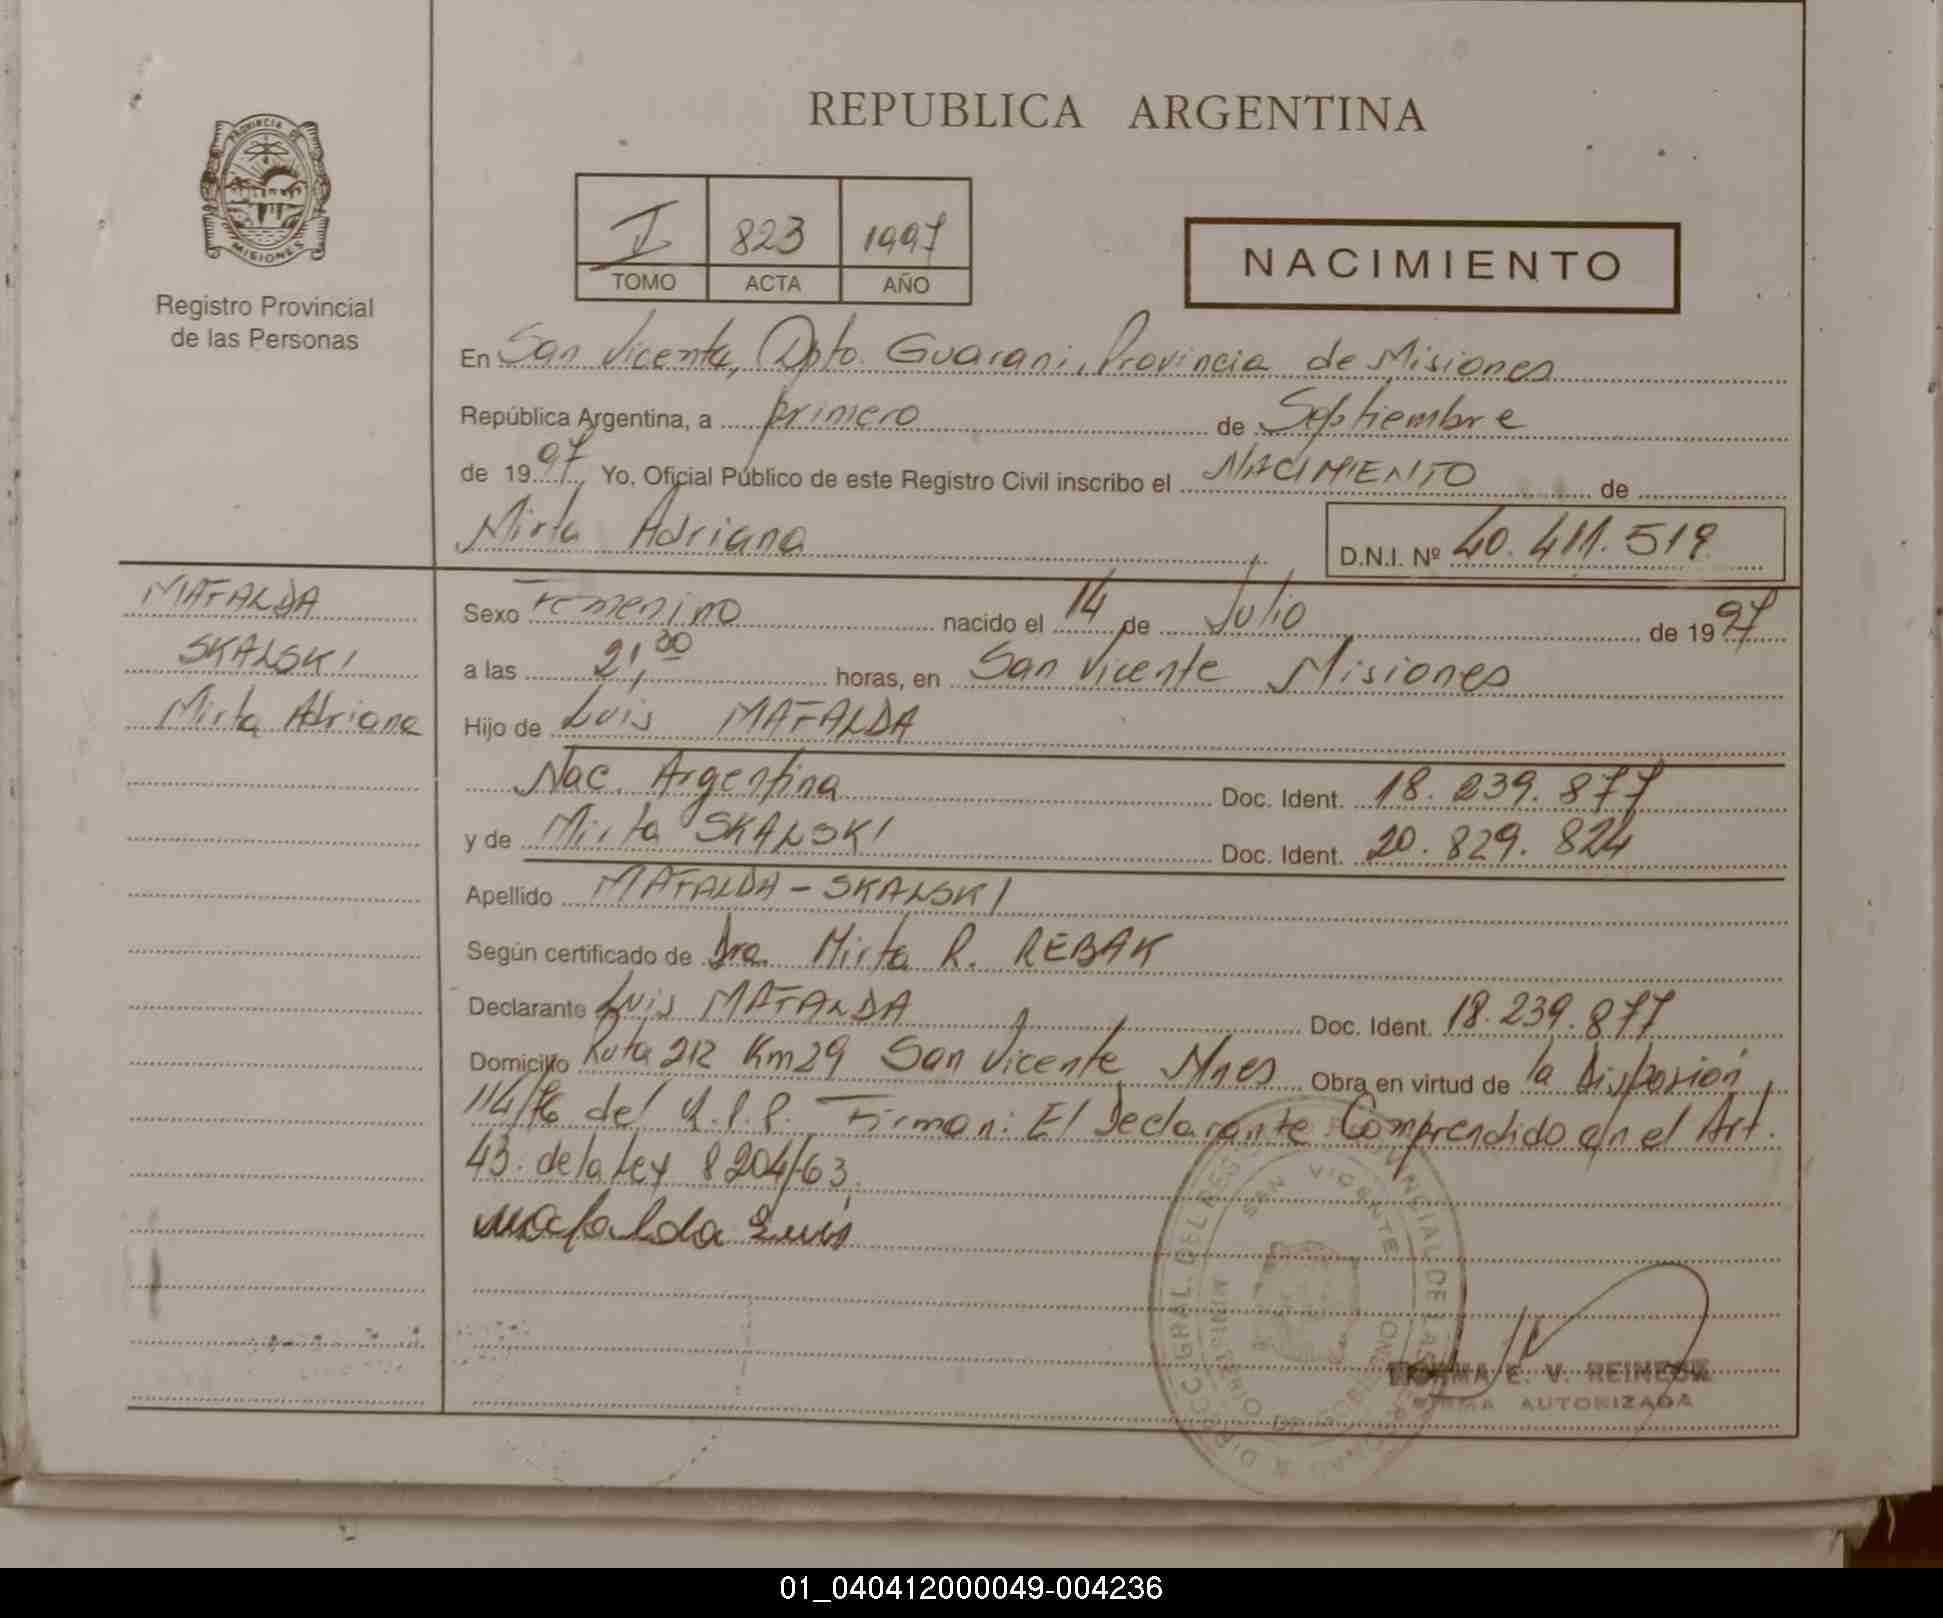 REPUBLICA ARGENTINA
PROVINCIA DE
MISIONES
Registro Provincial
de las Personas
823 1997
TOMO ACTA AÑO
NACIMIENTO
En San Vicente, Dpto. Guarani, Provincia de Misiones
República Argentina, a primero de Septiembre
de 1997 Yo, Oficial Público de este Registro Civil inscribo el NACIMIENTO de
Mirta Adriana
D.N.I. Nº 40.411.519
MAFALDA
SKALSKI
Mirta Adriana
Sexo Femenino nacido el 14 de Julio de 1997
a las 21,30 horas, en San Vicente Misiones
Hijo de Luis MAFALDA
Nac. Argentina Doc. Ident. 18.239.877
y de Mirta SKALSKI Doc. Ident. 20.829.824
Apellido MAFALDA - SKALSKI
Según certificado de Dra. Mirta R. REBAK
Declarante Luis MAFALDA Doc. Ident. 18.239.877
Domicilio Ruta 212 Km 29 San Vicente Mnes Obra en virtud de la Disposión
114/76 del R.P.P. Firman: El Declarante Comprendido en el Art.
43. de la Ley 8204/63.
Mafalda Luis
SAN VICENTE
MINISTERIO
NORMA E. V. REINECK
FIRMA AUTORIZADA
01_040412000049-004236